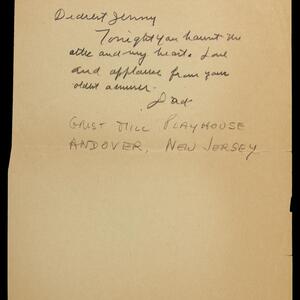 Dearest Jenny
Tonight you haunt the
attic and my heart. Love
and applause from your
oldest admirer.
Dad
GRIST MILL PLAYHOUSE
ANDOVER, NEW JERSEY